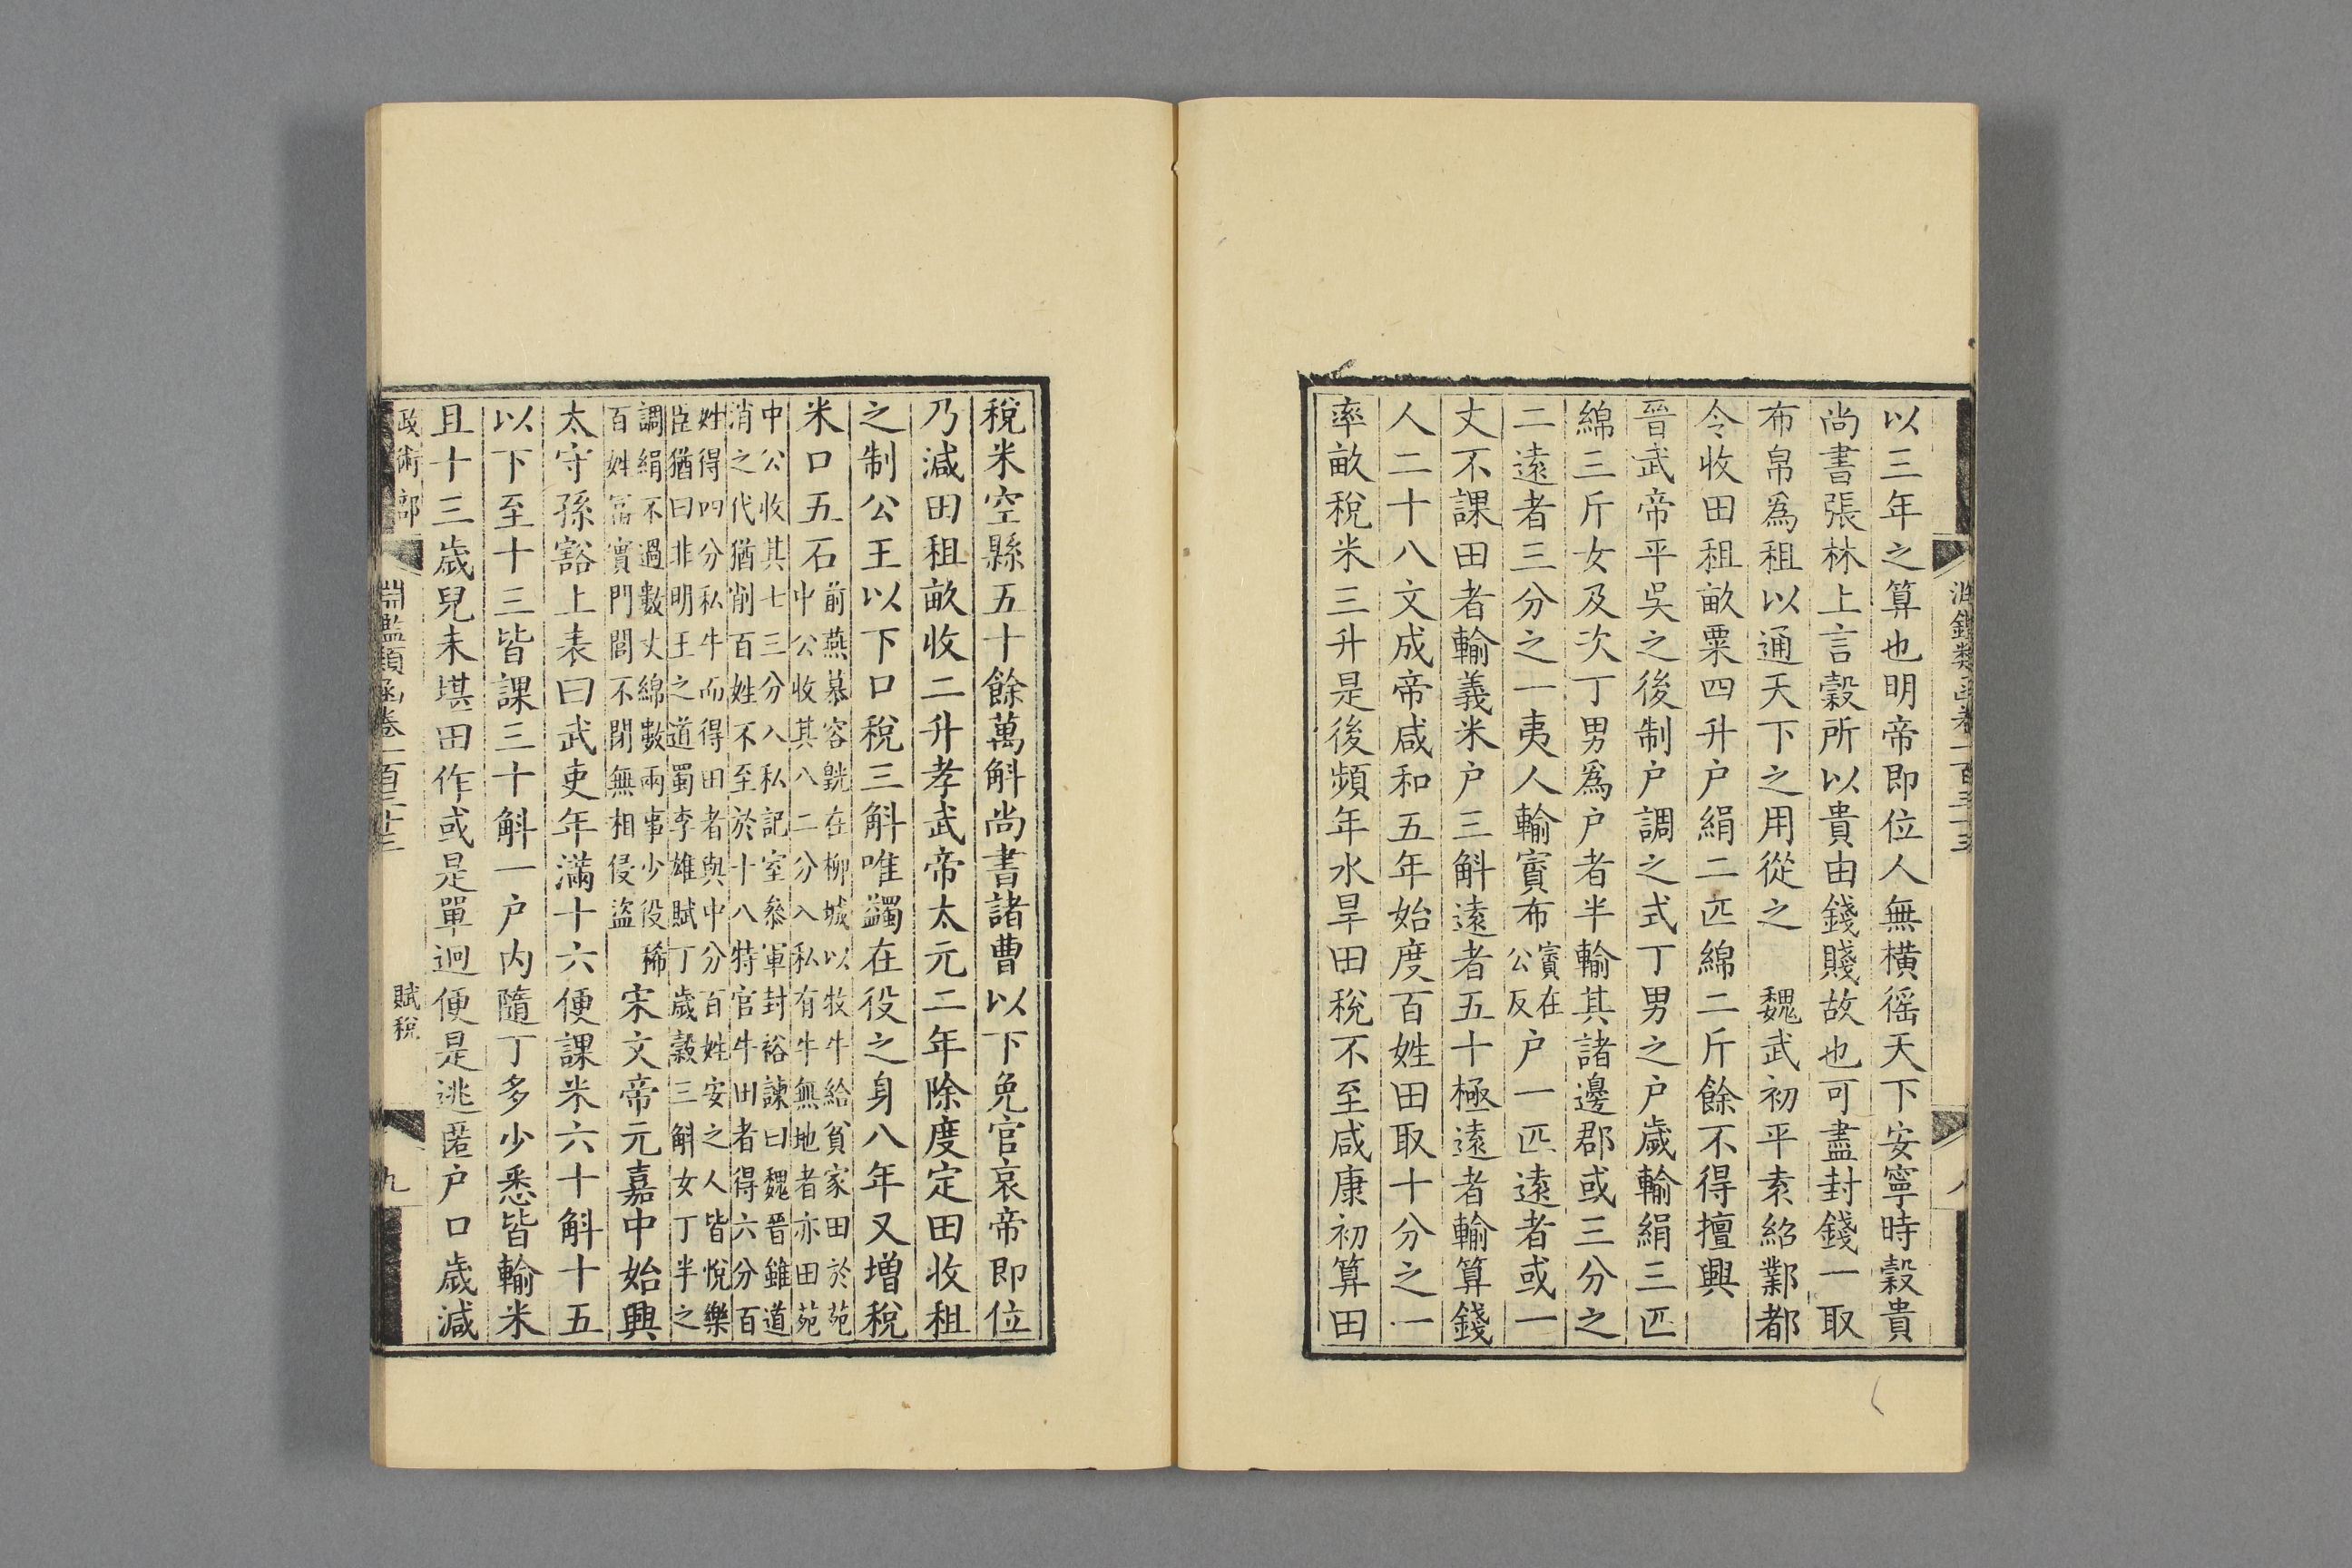 以三年之算也明帝即位人無橫徭天下安寧時穀貴
尚書張林上言穀所以貴由錢賤故也可盡封錢一取
布帛爲租以通天下之用從之　魏武初平袁紹鄴都
令收田租畝粟四升戸絹二匹綿二斤餘不得擅興
晉武帝平吳之後制戸調之式丁男之戸歲輸絹三匹
綿三斤女及次丁男爲戸者半輸其諸邊郡或三分之
二遠者三分之一夷人輸賨布賨在公反戸一匹遠者或一
丈不課田者輸義米戸三斛遠者五十極遠者輸算錢
人二十八文成帝咸和五年始度百姓田取十分之一
率畝稅米三升是後頻年水旱田稅不至咸康初算田
稅米空縣五十餘萬斛尚書諸曹以下免官哀帝即位
乃減田租畝收二升孝武帝太元二年除度定田收租
之制公王以下口稅三斛唯蠲在役之身八年又增稅
米口五石
前燕慕容皝在柳城以牧牛給貧家田於苑
中公收其八二分入私有牛無地者亦田苑
中公收其七三分入私記室參軍封裕諫曰魏晉雖道
消之代猶削百姓不至於十八特官牛田者得六分百
姓得四分私牛而得田者與中分百姓安之人皆悅樂
臣猶曰非明王之道蜀李雄賦丁歲穀三斛女丁半之
調絹不過數丈綿數兩事少役稀
百姓富實門閭不閉無相侵盜
宋文帝元嘉中始興
太守孫豁上表曰武吏年滿十六便課米六十斛十五
以下至十三皆課三十斛一戸內隨丁多少悉皆輸米
且十三歲兒未堪田作或是單迥便是逃匿戸口歲減
政術部
淵鑑類函卷一百三十三
賦稅
九